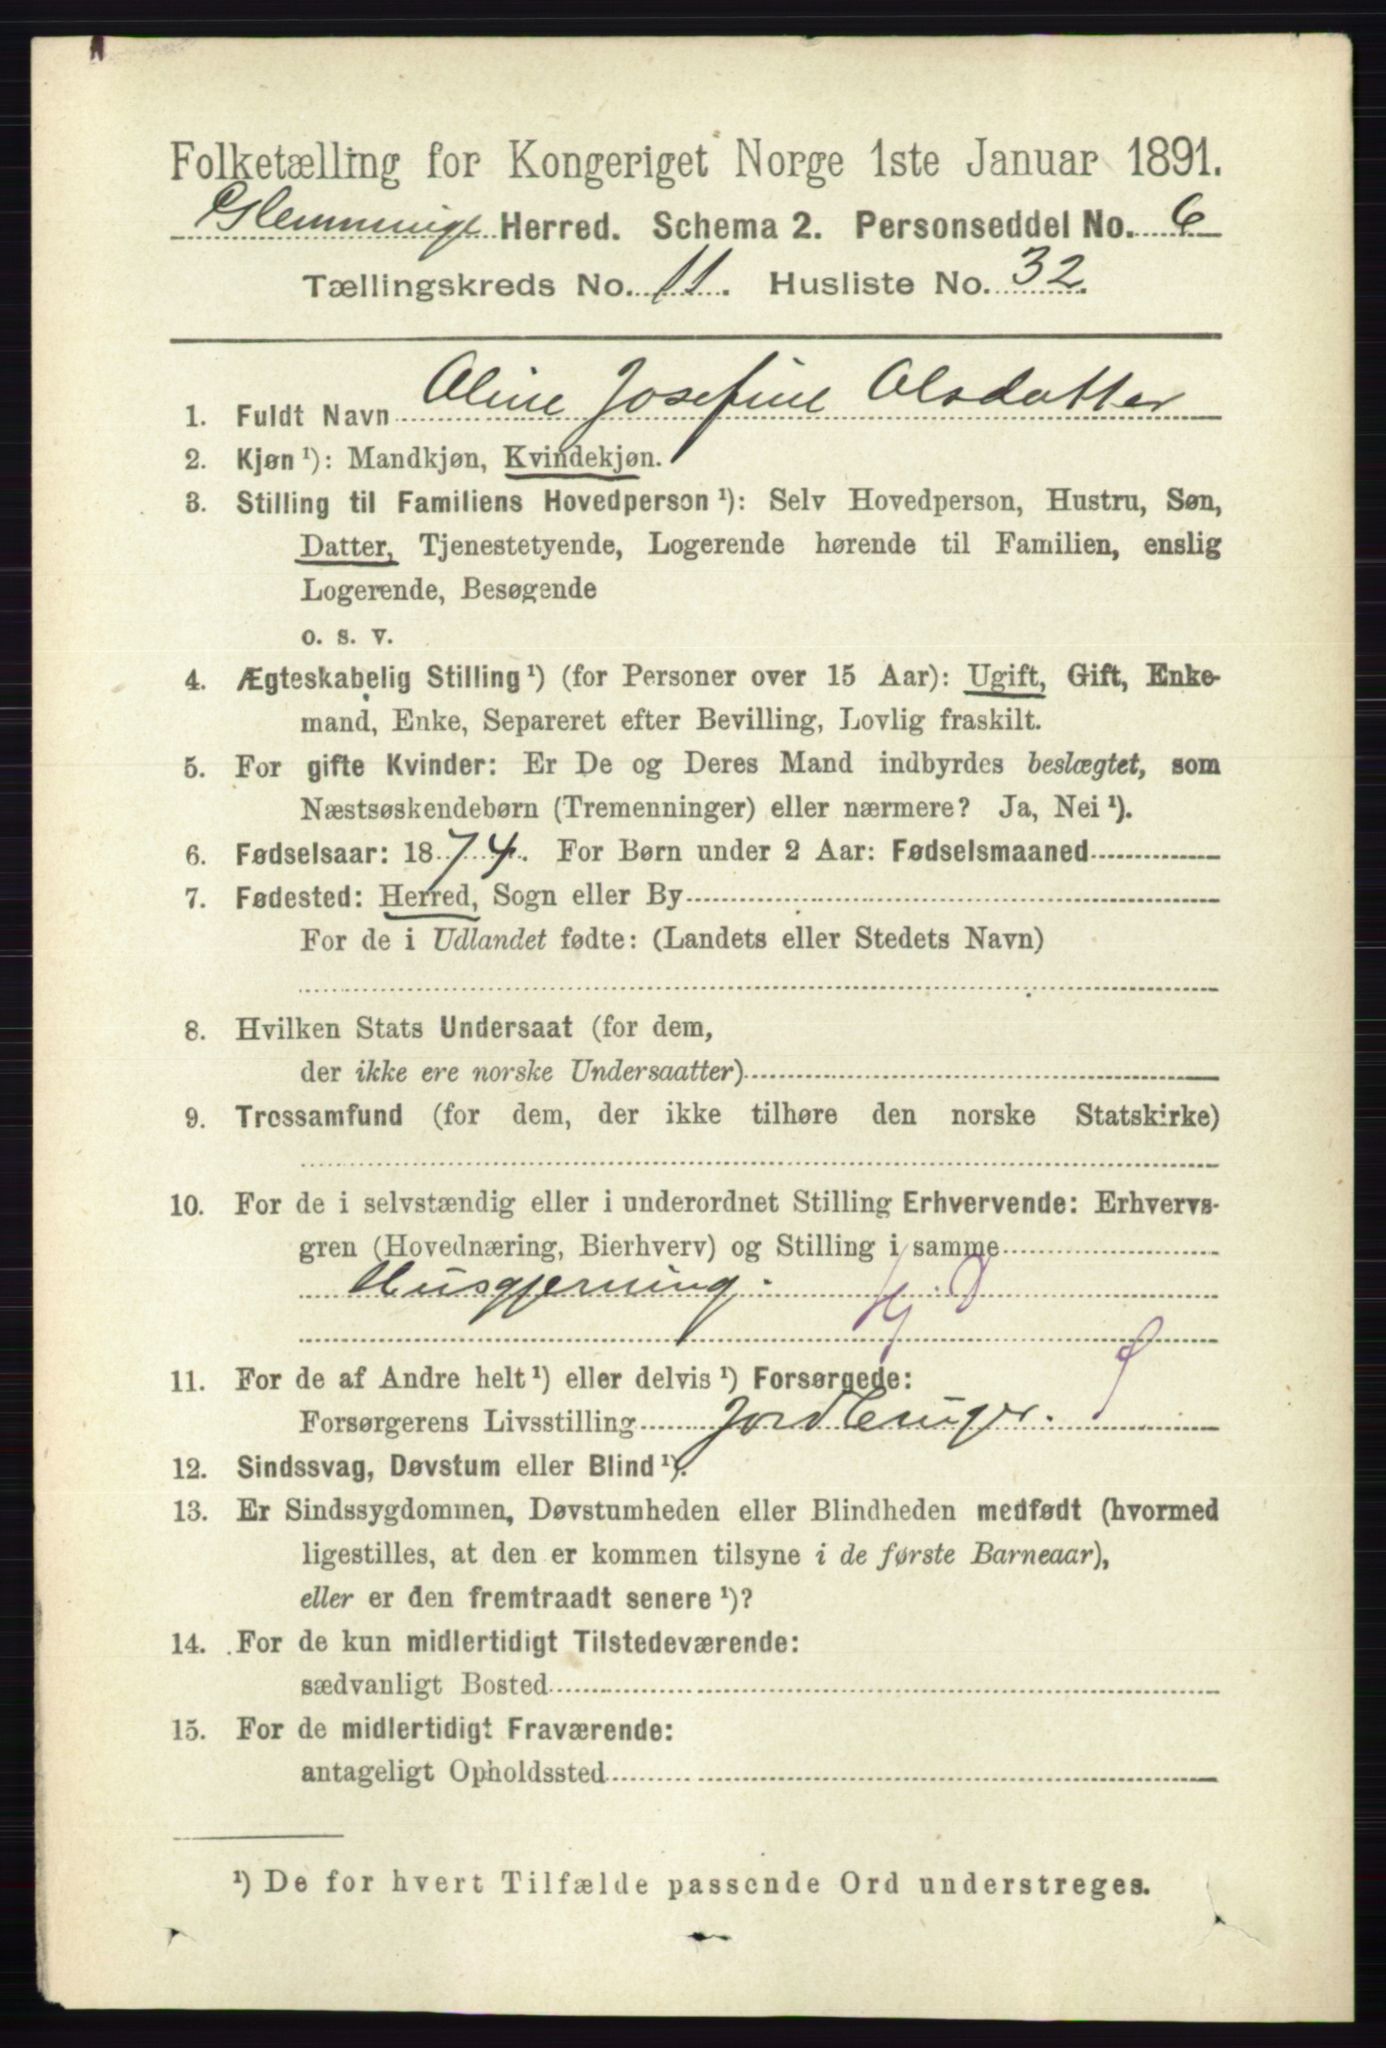 Folketælling for Kongeriget Norge 1ste Januar 1891.
Glemminge Herred. Schema 2. Personseddel No. 6
Tællingskreds No. 11. Husliste No. 32.
1. Fuldt Navn Oline Josefine Olsdatter
2. Kjøn ¹): Mandkjøn, Kvindekjøn.
3. Stilling til Familiens Hovedperson ¹): Selv Hovedperson, Hustru, Søn,
Datter, Tjenestetyende, Logerende hørende til Familien, enslig
Logerende, Besøgende
o. s. v.
4. Ægteskabelig Stilling ¹) (for Personer over 15 Aar): Ugift, Gift, Enke-
mand, Enke, Separeret efter Bevilling, Lovlig fraskilt.
5. For gifte Kvinder: Er De og Deres Mand indbyrdes beslægtet, som
Næstsøskendebørn (Tremenninger) eller nærmere? Ja, Nei ¹).
6. Fødselsaar: 1874. For Børn under 2 Aar: Fødselsmaaned
7. Fødested: Herred, Sogn eller By
For de i Udlandet fødte: (Landets eller Stedets Navn)
8. Hvilken Stats Undersaat (for dem,
der ikke ere norske Undersaatter)
9. Trossamfund (for dem, der ikke tilhøre den norske Statskirke)
10. For de i selvstændig eller i underordnet Stilling Erhvervende: Erhvervs-
gren (Hovednæring, Bierhverv) og Stilling i samme
Husgjerning. Hj. d
11. For de af Andre helt ¹) eller delvis ¹) Forsørgede:
Forsørgerens Livsstilling Jordbruger.
12. Sindssvag, Døvstum eller Blind ¹).
13. Er Sindssygdommen, Døvstumheden eller Blindheden medfødt (hvormed
ligestilles, at den er kommen tilsyne i de første Barneaar),
eller er den fremtraadt senere ¹)?
14. For de kun midlertidigt Tilstedeværende:
sædvanligt Bosted
15. For de midlertidigt Fraværende:
antageligt Opholdssted
¹) De for hvert Tilfælde passende Ord understreges.